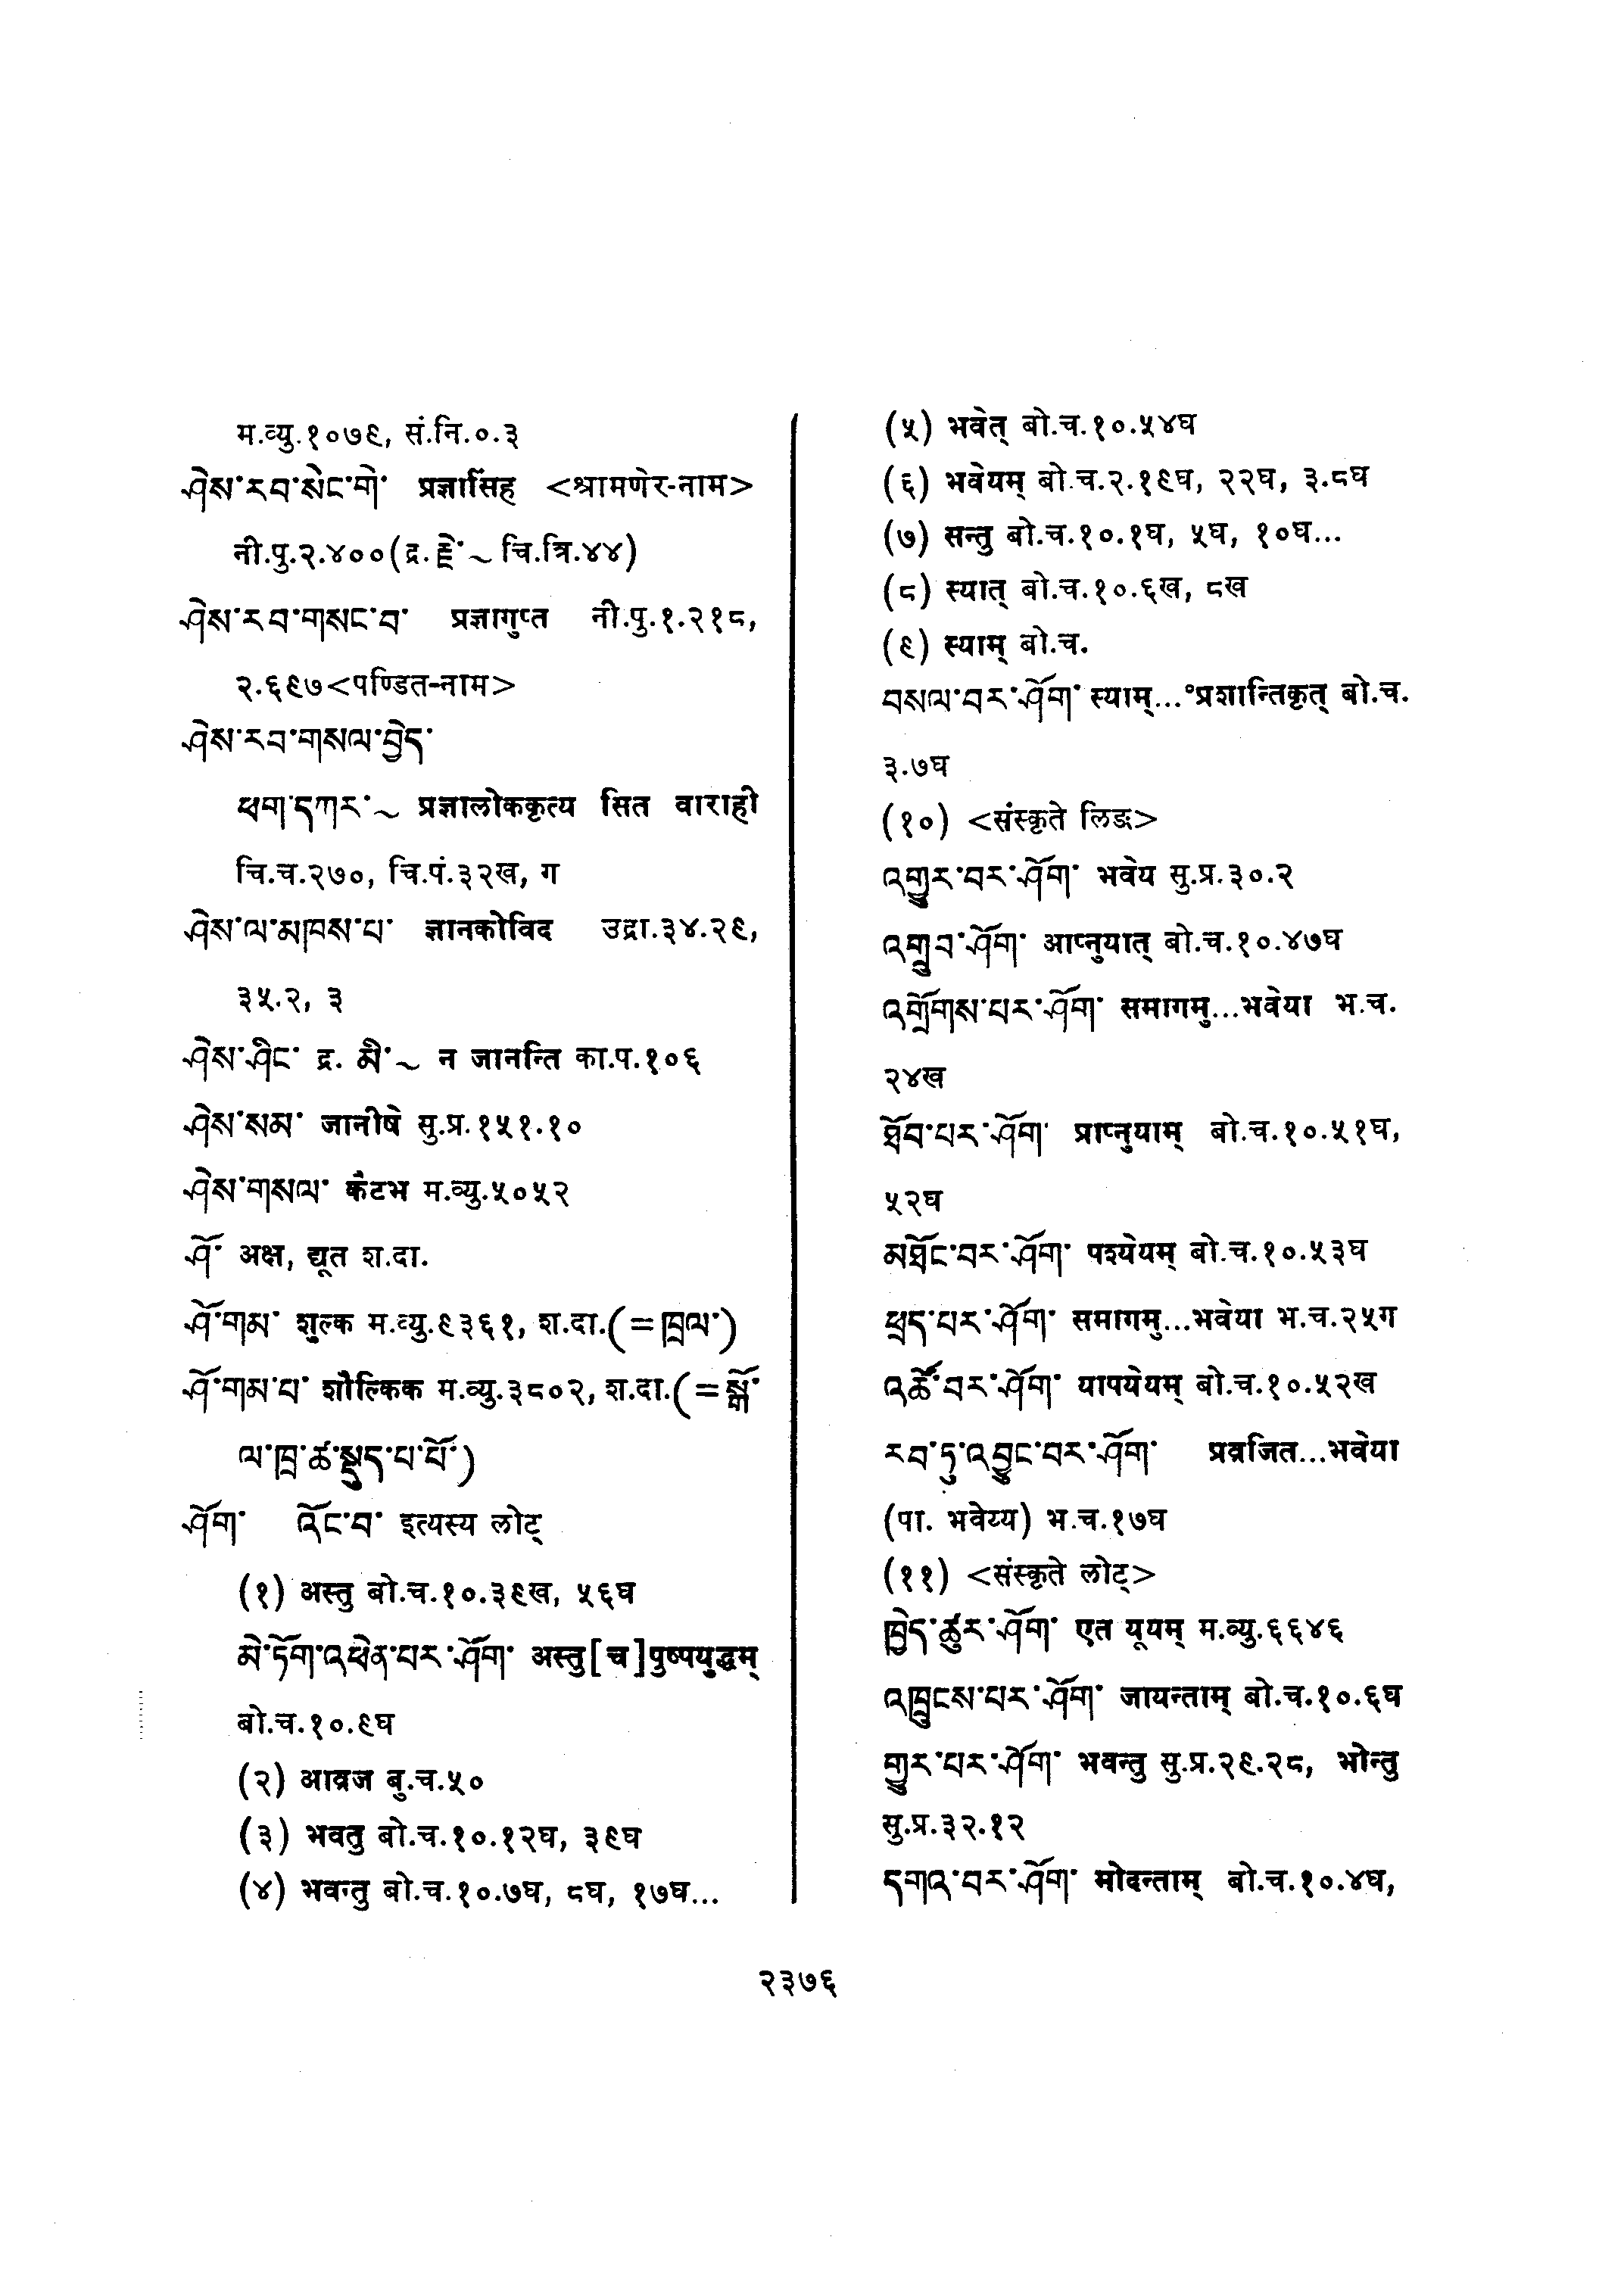 म.व्यु.१०७९, सं.नि.०.३
ཤེས་རབ་སེང་གེ་ प्रज्ञासिंह <श्रामणेर-नाम>
नी.पु.२.४००(द्र. རྗེ་ ~ चि.त्रि.४४)
ཤེས་རབ་གསང་བ་ प्रज्ञागुप्त नी.पु.१.२१८,
२.६९७<पण्डित-नाम>
ཤེས་རབ་གསལ་བྱེད་
ཕག་དཀར་ ~ प्रज्ञालोककृत्य सित वाराही
चि.च.२७०, चि.पं.३२ख, ग
ཤེས་ལ་མཁས་པ་ ज्ञानकोविद उद्रा.३४.२९,
३५.२, ३
ཤེས་ཤིང་ द्र. མི་ ~ न जानन्ति का.प.१०६
ཤེས་སམ་ जानीषे सु.प्र.१५१.१०
ཤེས་གསལ་ कैटभ म.व्यु.५०५२
ཤོ་ अक्ष, द्यूत श.दा.
ཤོ་གམ་ शुल्क म.व्यु.९३६१, श.दा.(=ཁྲལ་)
ཤོ་གམ་པ་ शौल्किक म.व्यु.३८०२, श.दा.(=སྒོ་
ལ་ཁྲ་ཚ་སྡུད་པ་པོ་)
ཤོག་ འོང་བ་ इत्यस्य लोट्
(१) अस्तु बो.च.१०.३९ख, ५६घ
མེ་ཏོག་འཕེན་པར་ཤོག་ अस्तु[च]पुष्पयुद्धम्
बो.च.१०.९घ
(२) आव्रज बु.च.५०
(३) भवतु बो.च.१०.१२घ, ३९घ
(४) भवन्तु बो.च.१०.७घ, ८घ, १७घ...
(५) भवेत् बो.च.१०.५४घ
(६) भवेयम् बो.च.२.१९घ, २२घ, ३.८घ
(७) सन्तु बो.च.१०.१घ, ५घ, १०घ...
(८) स्यात् बो.च.१०.६ख, ८ख
(९) स्याम् बो.च.
བསལ་བར་ཤོག་ स्याम्...°प्रशान्तिकृत् बो.च.
३.७घ
(१०) <संस्कृते लिङ>
འགྱུར་བར་ཤོག་ भवेय सु.प्र.३०.२
འགྲུབ་ཤོག་ आप्नुयात् बो.च.१०.४७घ
འགྲོགས་པར་ཤོག་ समागमु...भवेया भ.च.
२४ख
ཐོབ་པར་ཤོག་ प्राप्नुयाम् बो.च.१०.५१घ,
५२घ
མཐོང་བར་ཤོག་ पश्येयम् बो.च.१०.५३घ
ཕྲད་པར་ཤོག་ समागमु...भवेया भ.च.२५ग
འཚོ་བར་ཤོག་ यापयेयम् बो.च.१०.५२ख
རབ་ཏུ་འབྱུང་བར་ཤོག་ प्रव्रजित...भवेया
(पा. भवेय्य) भ.च.१७घ
(११) <संस्कृते लोट्>
ཁྱེད་ཚུར་ཤོག་ एत यूयम् म.व्यु.६६४६
འཁྲུངས་པར་ཤོག་ जायन्ताम् बो.च.१०.६घ
གྱུར་པར་ཤོག་ भवन्तु सु.प्र.२९.२८, भोन्तु
सु.प्र.३२.१२
དགའ་བར་ཤོག་ मोदन्ताम् बो.च.१०.४घ,
२३७६